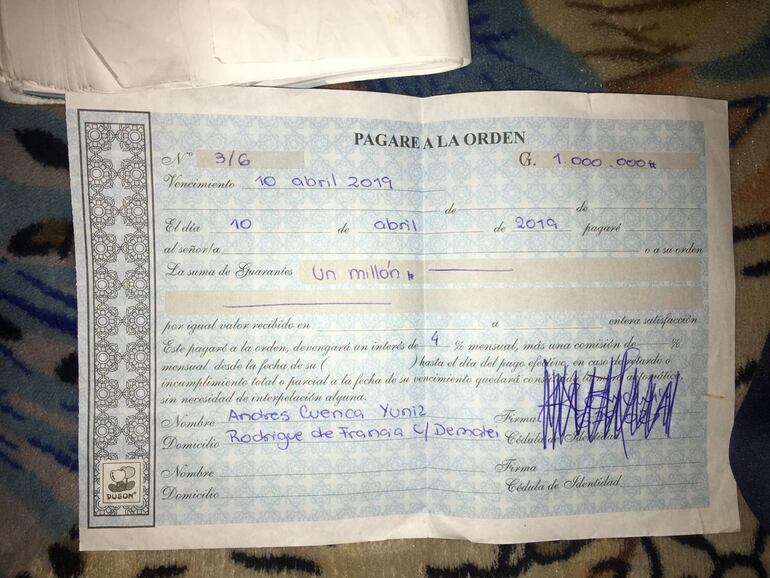 PAGARE A LA ORDEN
Nº 3/6 G. 1.000.000#
Vencimiento 10 abril 2019
de de
El día 10 de abril de 2019 pagaré
al señor/a o a su orden
La suma de Guaraníes Un millón #
por igual valor recibido en a entera satisfacción
Este pagaré a la orden, devengará un interés de 4 % mensual, más una comisión de %
mensual desde la fecha de su ( ) hasta el día del pago efectivo, en caso de retardo o
incumplimiento total o parcial a la fecha de su vencimiento quedará la mora automática,
sin necesidad de interpelación alguna.
Nombre Andres Cuenca Yuniz Firma
Domicilio Rodrigue de Francia c/ Dematei Cédula de Identidad
Nombre Firma
Domicilio Cédula de Identidad
DUGON